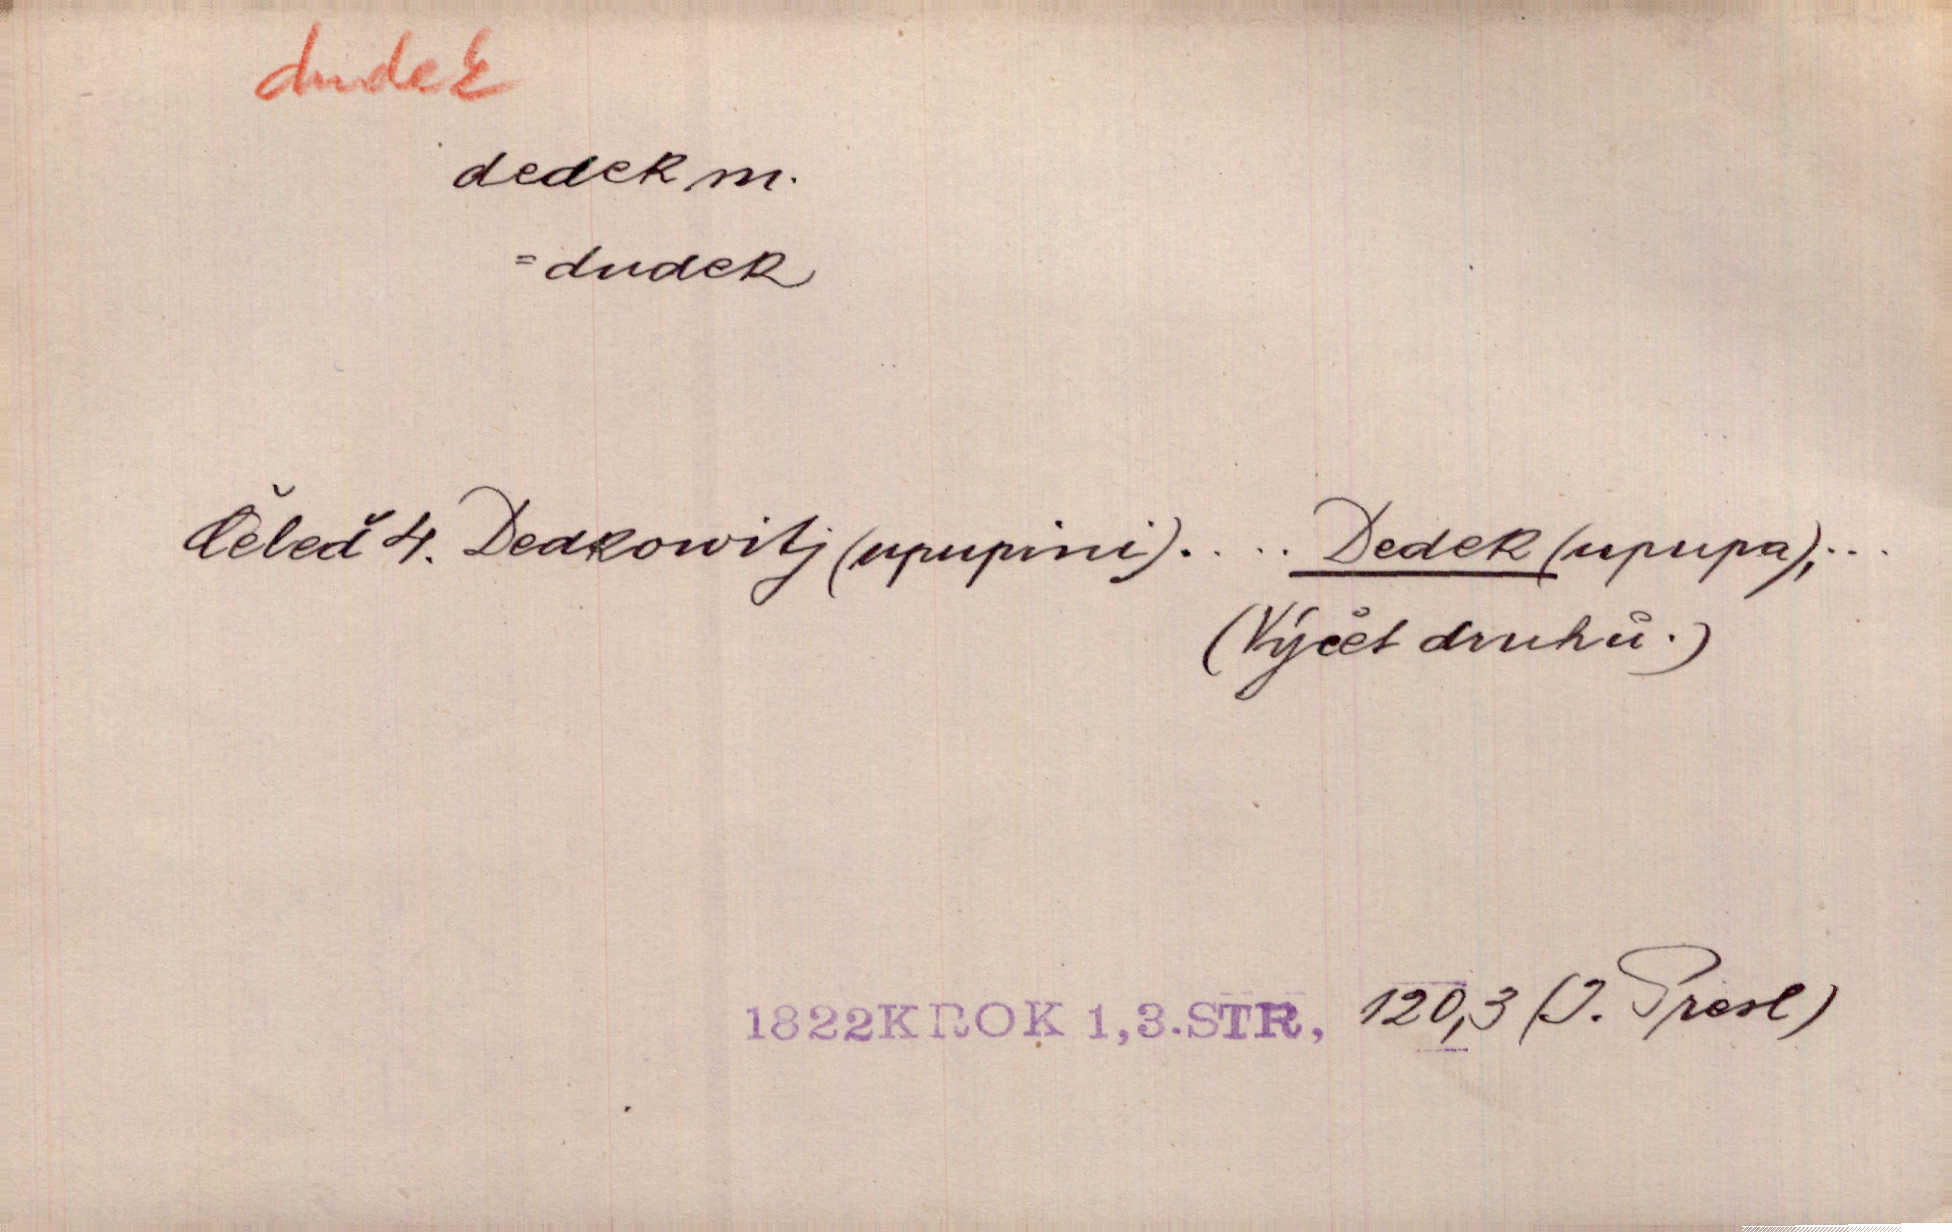 dudek
dedek m.
= dudek
Čeleď 4. Dedkowitj (upupini). . . . Dedek (upupa),...
(Výčet druhů.)
1822 KROK 1,3.STR, 120,3 (J. Presl)